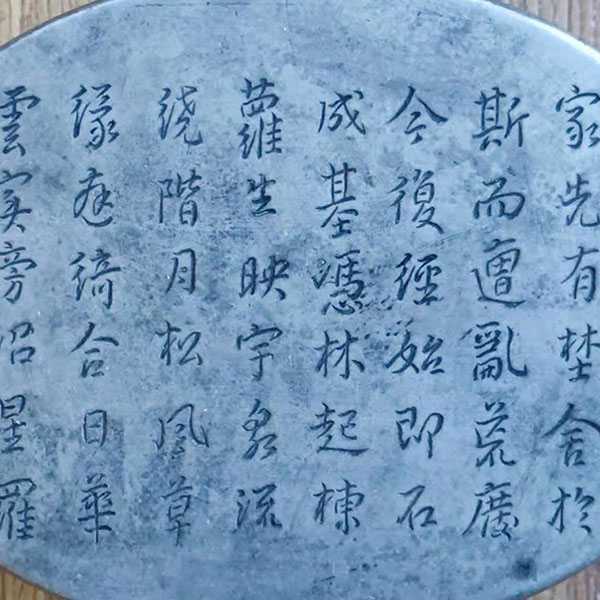 家先有埜舍於
斯而遭亂荒廢
今復經始即石
成基憑林起棟
蘿生映宇泉流
繞階月松風草
緣庭綺合日華
雲實旁沼星羅